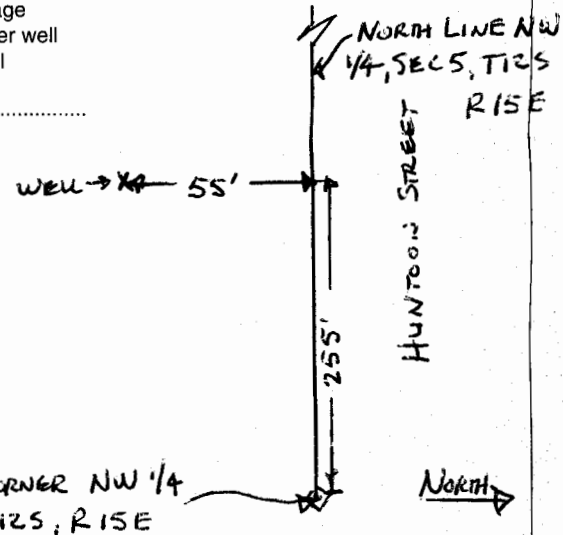 age
er well
l
NORTH LINE NW
1/4, SEC 5, T12S
R15E
WELL
55'
HUNTOON STREET
255'
ORNER NW 1/4
T12S, R15E
NORTH